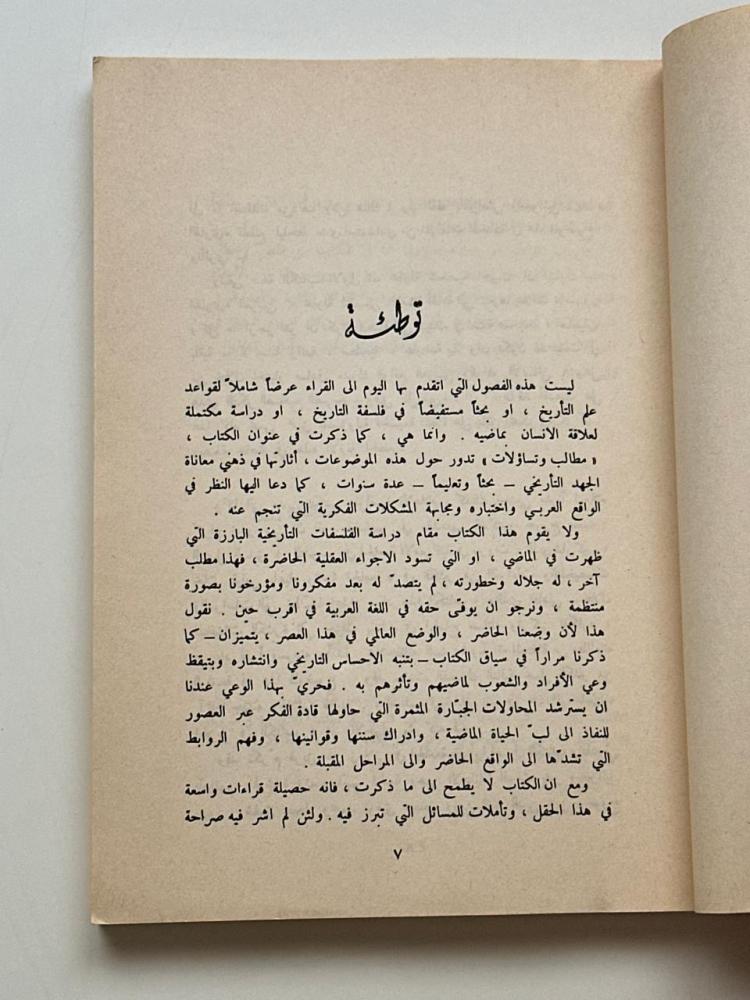 توطئة
ليست هذه الفصول التي اتقدم بها اليوم الى القراء عرضاً شاملاً لقواعد
علم التأريخ ، او بحثاً مستفيضاً في فلسفة التاريخ ، او دراسة مكتملة
لعلاقة الانسان بماضيه . وانما هي ، كما ذكرت في عنوان الكتاب ،
« مطالب وتساؤلات » تدور حول هذه الموضوعات ، أثارتها في ذهني معاناة
الجهد التأريخي – بحثاً وتعليماً – عدة سنوات ، كما دعا اليها النظر في
الواقع العربي واختباره ومجابهة المشكلات الفكرية التي تنجم عنه .
ولا يقوم هذا الكتاب مقام دراسة الفلسفات التأريخية البارزة التي
ظهرت في الماضي ، او التي تسود الاجواء العقلية الحاضرة ، فهذا مطلب
آخر ، له جلاله وخطورته ، لم يتصدّ له بعد مفكرونا ومؤرخونا بصورة
منتظمة ، ونرجو ان يوفّى حقه في اللغة العربية في اقرب حين . نقول
هذا لأن وضعنا الحاضر ، والوضع العالمي في هذا العصر ، يتميزان – كما
ذكرنا مراراً في سياق الكتاب – بتنبه الاحساس التاريخي وانتشاره وبتيقظ
وعي الأفراد والشعوب لماضيهم وتأثرهم به . فحريّ بهذا الوعي عندنا
ان يسترشد المحاولات الجبّارة المثمرة التي حاولها قادة الفكر عبر العصور
للنفاذ الى لبّ الحياة الماضية ، وادراك سننها وقوانينها ، وفهم الروابط
التي تشدّها الى الواقع الحاضر والى المراحل المقبلة .
ومع ان الكتاب لا يطمح الى ما ذكرت ، فانه حصيلة قراءات واسعة
في هذا الحقل ، وتأملات للمسائل التي تبرز فيه . ولئن لم اشر فيه صراحة
٧